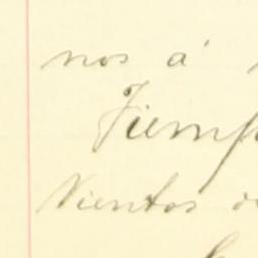 nos á
Tiemp
Vientos d